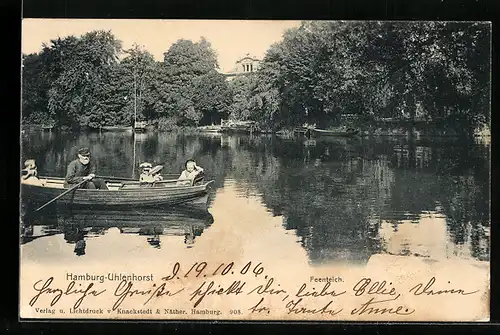 Hamburg-Uhlenhorst
d. 19. 10. 06.
Feenteich.
Herzliche Grüße schickt Dir, liebe Ellie, Deine
Tante Anne.
Verlag u. Lichtdruck v. Knackstedt & Näther, Hamburg. 908.